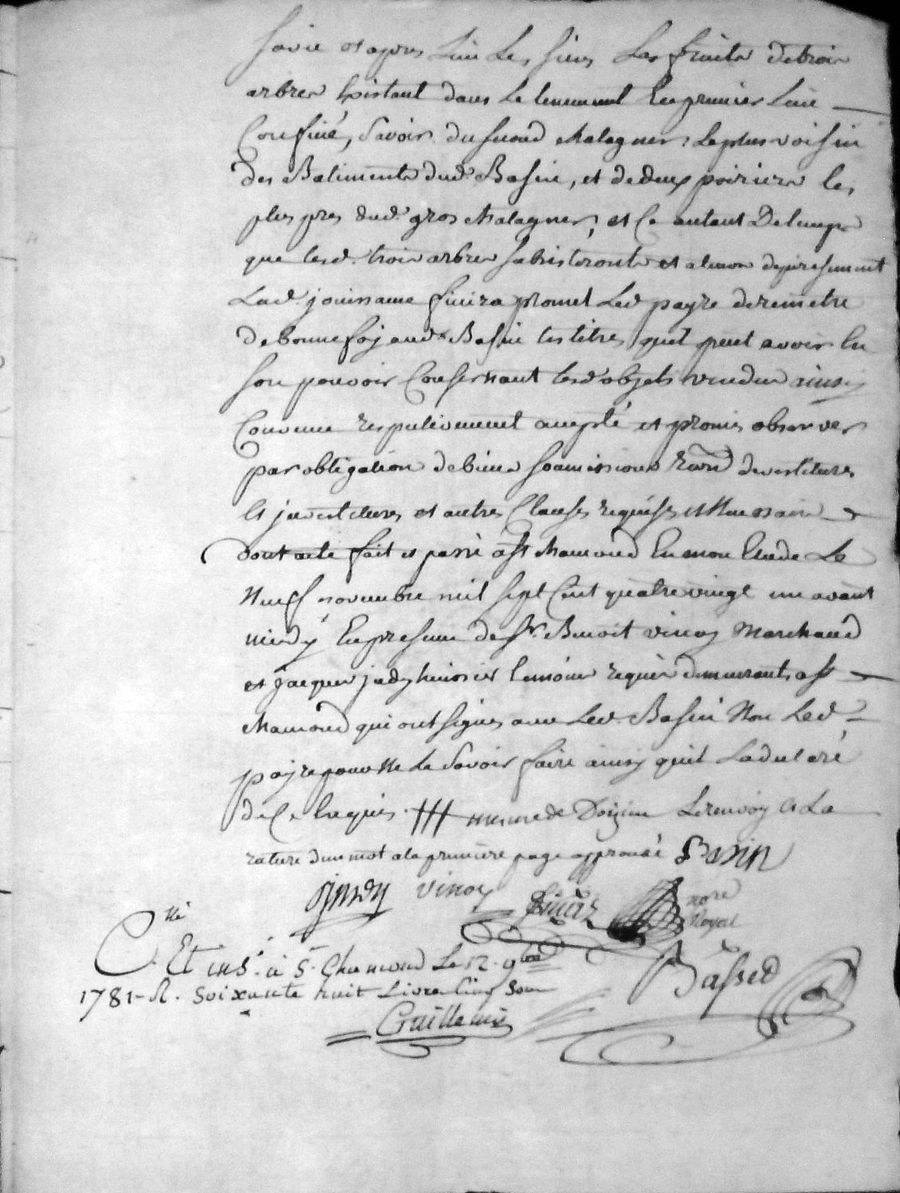 sa vie et apres luy les siens les fruits de trois
arbres existant dans le tenement en premier lieu
confiné, savoir du second chatagner le plus voisin
des Batiments dud. Basin, et de deux poiriers les
plus pres dud. gros chatagner, et ce autant de temps
que lesd. trois arbres subsisteronts et
lad. jouissance finira promet led. payre de remetre
de bonne foy aud. Basin les titres qu'il peut avoir en
son pouvoir consernant lesd. objets vendus ainsy
convenu respectivement accepté et promis observer
par obligation de biens soumissions devestitures
et investitures et autres clauses requises et necessaire
dont acte fait et passé a St Chamond en mon Etude le
neuf novembre mil sept cent quatre vingt un avant
midy En presence de Sr. Benoit vinoy Marchand
et jacques jady huissier temoins requis demeurants a St
Chamond qui ont signes avec led. Basin Non led.
payre pour ne le savoir faire ainsy quil la declaré
de ce enquis. mesure de le renvoy et la
rature d'un mot a la premiere page approuvé Basin
vinoy
nore
Royal
Clle
Et ins. à St. Chamond Le 12. 9bre
1781. R. Soixante huit Livres Cinq Sous